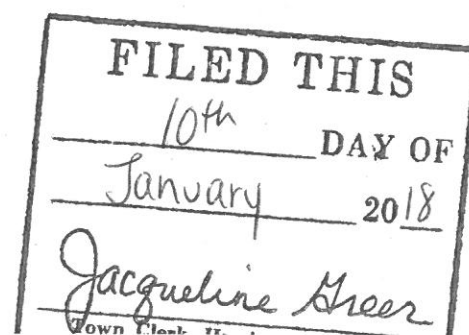 FILED THIS
10th DAY OF
January 2018
Jacqueline Greer
Town Clerk